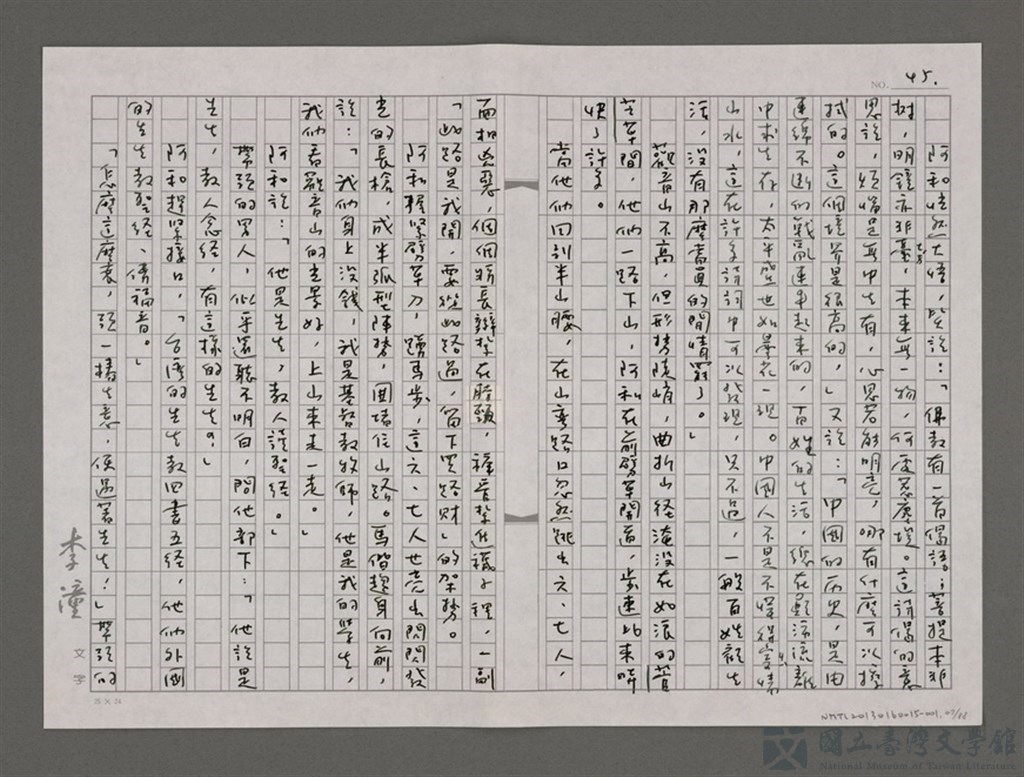 NO. 45.
阿和恍然大悟，笑說：「佛教有一首偈語：菩提本非
樹，明鏡亦非臺，本來無一物，何處惹塵埃。這詩偈的意
思說，煩惱是無中生有，心思若能明亮，哪有什麼可以擦
拭的。這個境界是很高的，」又說：「中國的历史，是由
連綿不斷的戰亂連串起來的，百姓的生活，總在顛沛流離
中求生存，太平盛世如曇花一現。中國人不是不懂得寄情
山水，這在許多詩詞中可以發現，只不過，一般百姓討生
活，沒有那麼奢侈的閒情罷了。」
觀音山不高，但形勢陡峭，曲折山徑淹沒在如浪的菅
芒草間，他們一路下山，阿和在前劈草開道，步速比來時
快了許多。
當他們回到半山腰，在山彎路口忽然跳出六、七人，
面相凶惡，個個將長辮紮在脖頸，褲管紮進襪子裡，一副
「此路是我開，要從此路過，留下買路財」的架勢。
阿和握緊劈草刀，蹲馬步，這六、七人也亮出閃閃發
光的長槍，成半弧型陣勢，圍堵住山路。馬偕趨身向前，
說：「我們身上沒錢，我是基督教牧師，他是我的學生，
我們看觀音山的光景好，上山來走一走。」
阿和說：「他是先生，教人讀聖經。」
帶頭的男人，似乎還聽不明白，問他部下：「他說是
先生，教人念經，有這樣的先生？」
阿和趕緊接口，「台灣的先生教四書五經，他們外國
的先生教聖經、傳福音。」
「怎麼這麼衰，頭一樁生意，便遇著先生！」帶頭的
李潼
文字
25×24
NMTL20130160015-001,
國立臺灣文學館
National Museum of Taiwan Literature